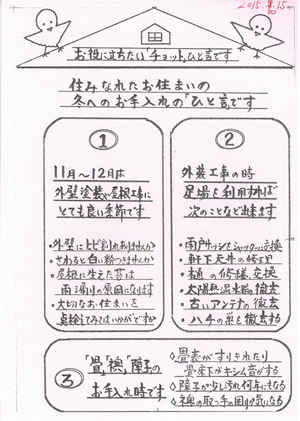 2015.11.15
お役に立ちたい「チョット」ひと言です
住みなれたお住まいの
冬へのお手入れの「ひと言」です
①
11月〜12月は
外壁塗装や屋根工事に
とても良い季節です
・外壁にヒビ割れ有りませんか
・さわると白い粉つきませんか
・屋根に生えた苔は
雨漏りの原因になります
・大切なお住まいを
点検してみてはいかがですか
②
外装工事の時
足場を利用すれば
次のことなど出来ます
・雨戸サッシをシャッターに交換
・軒下天井の修理
・樋の修繕、交換
・太陽熱温水器の撤去
・古いアンテナの撤去
・ハチの巣を撤去する
3
「畳」「襖」「障子」の
お手入れ時です
◇畳表がすりきれたり
畳床下がキシム音がする
◇障子が少し汚れ何年にもなる
◇襖の取っ手の周りが気になる